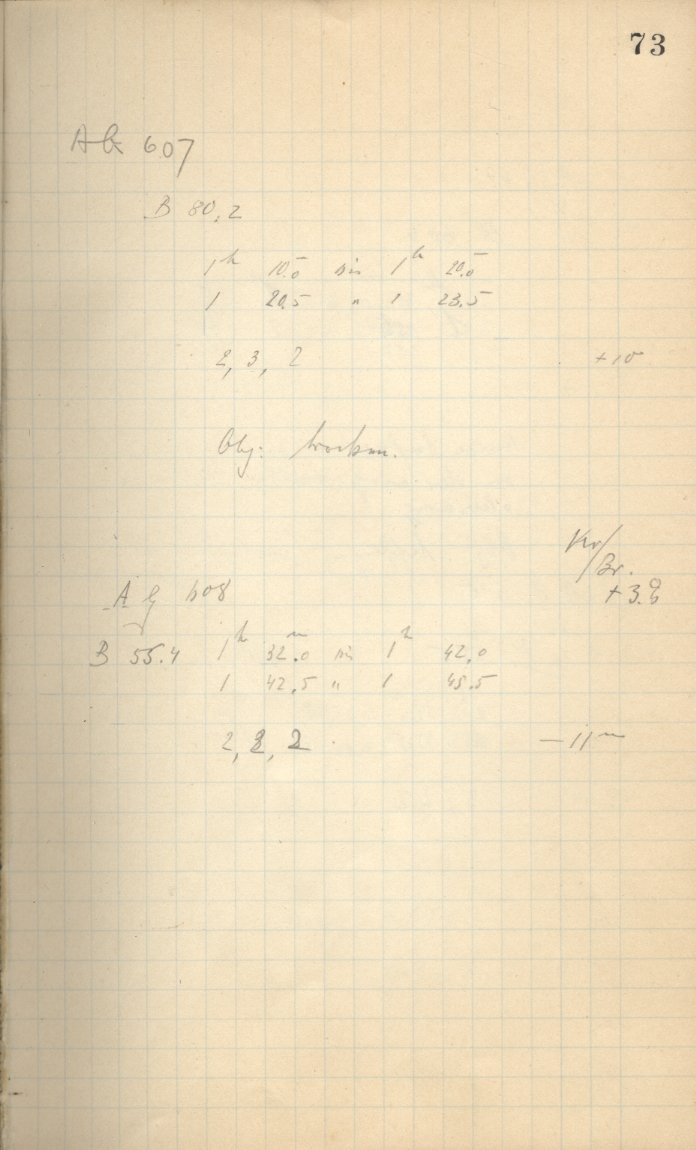 73
AG 607
B 80,2
1h 10.0 bis 1h 20.0
1 20,5 " 1 23.5
2, 3, 2 +10
Obj. trocken.
Kr/Br.
AG 608 +3.8
B 55.4 1h 32m.0 bis 1h 42.0
1 42,5 " 1 45.5
2, 2, 2 -11m